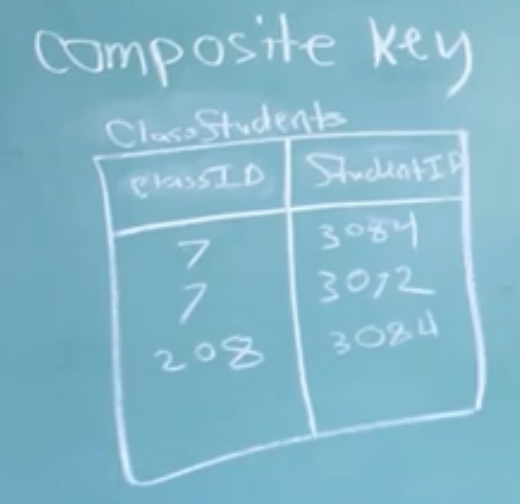 composite key
ClassStudents
ClassID StudentID
7 3084
7 3072
208 3084